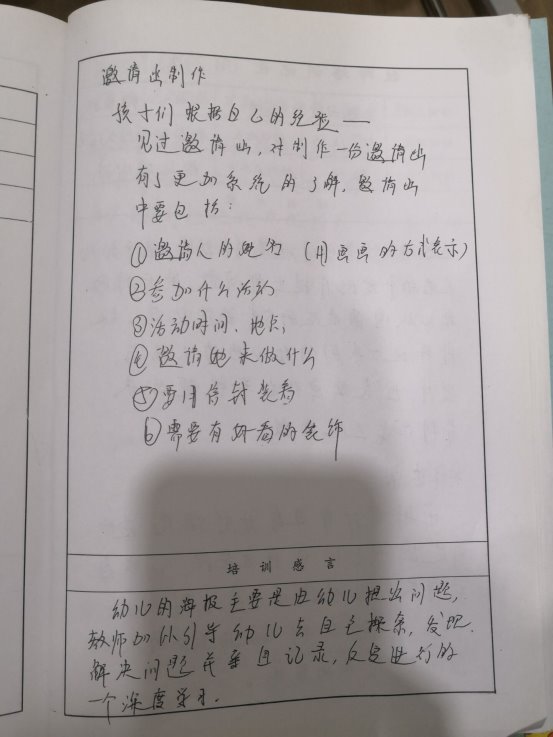 邀请出制作
孩子们根据自己的经验——
见过邀请出,对制作一份邀请出
有了更加系统的了解,邀请出
中要包括:
①邀请人的姓名(用画画的方式表示)
②参加什么活动
③活动时间、地点
④邀请她来做什么
⑤要用信封装着
⑥需要有好看的装饰
培训感言
幼儿的海报主要是由幼儿提出问题,
教师加以引导幼儿去自己探索,发现
解决问题并
且记录,
的
一个深度学习.